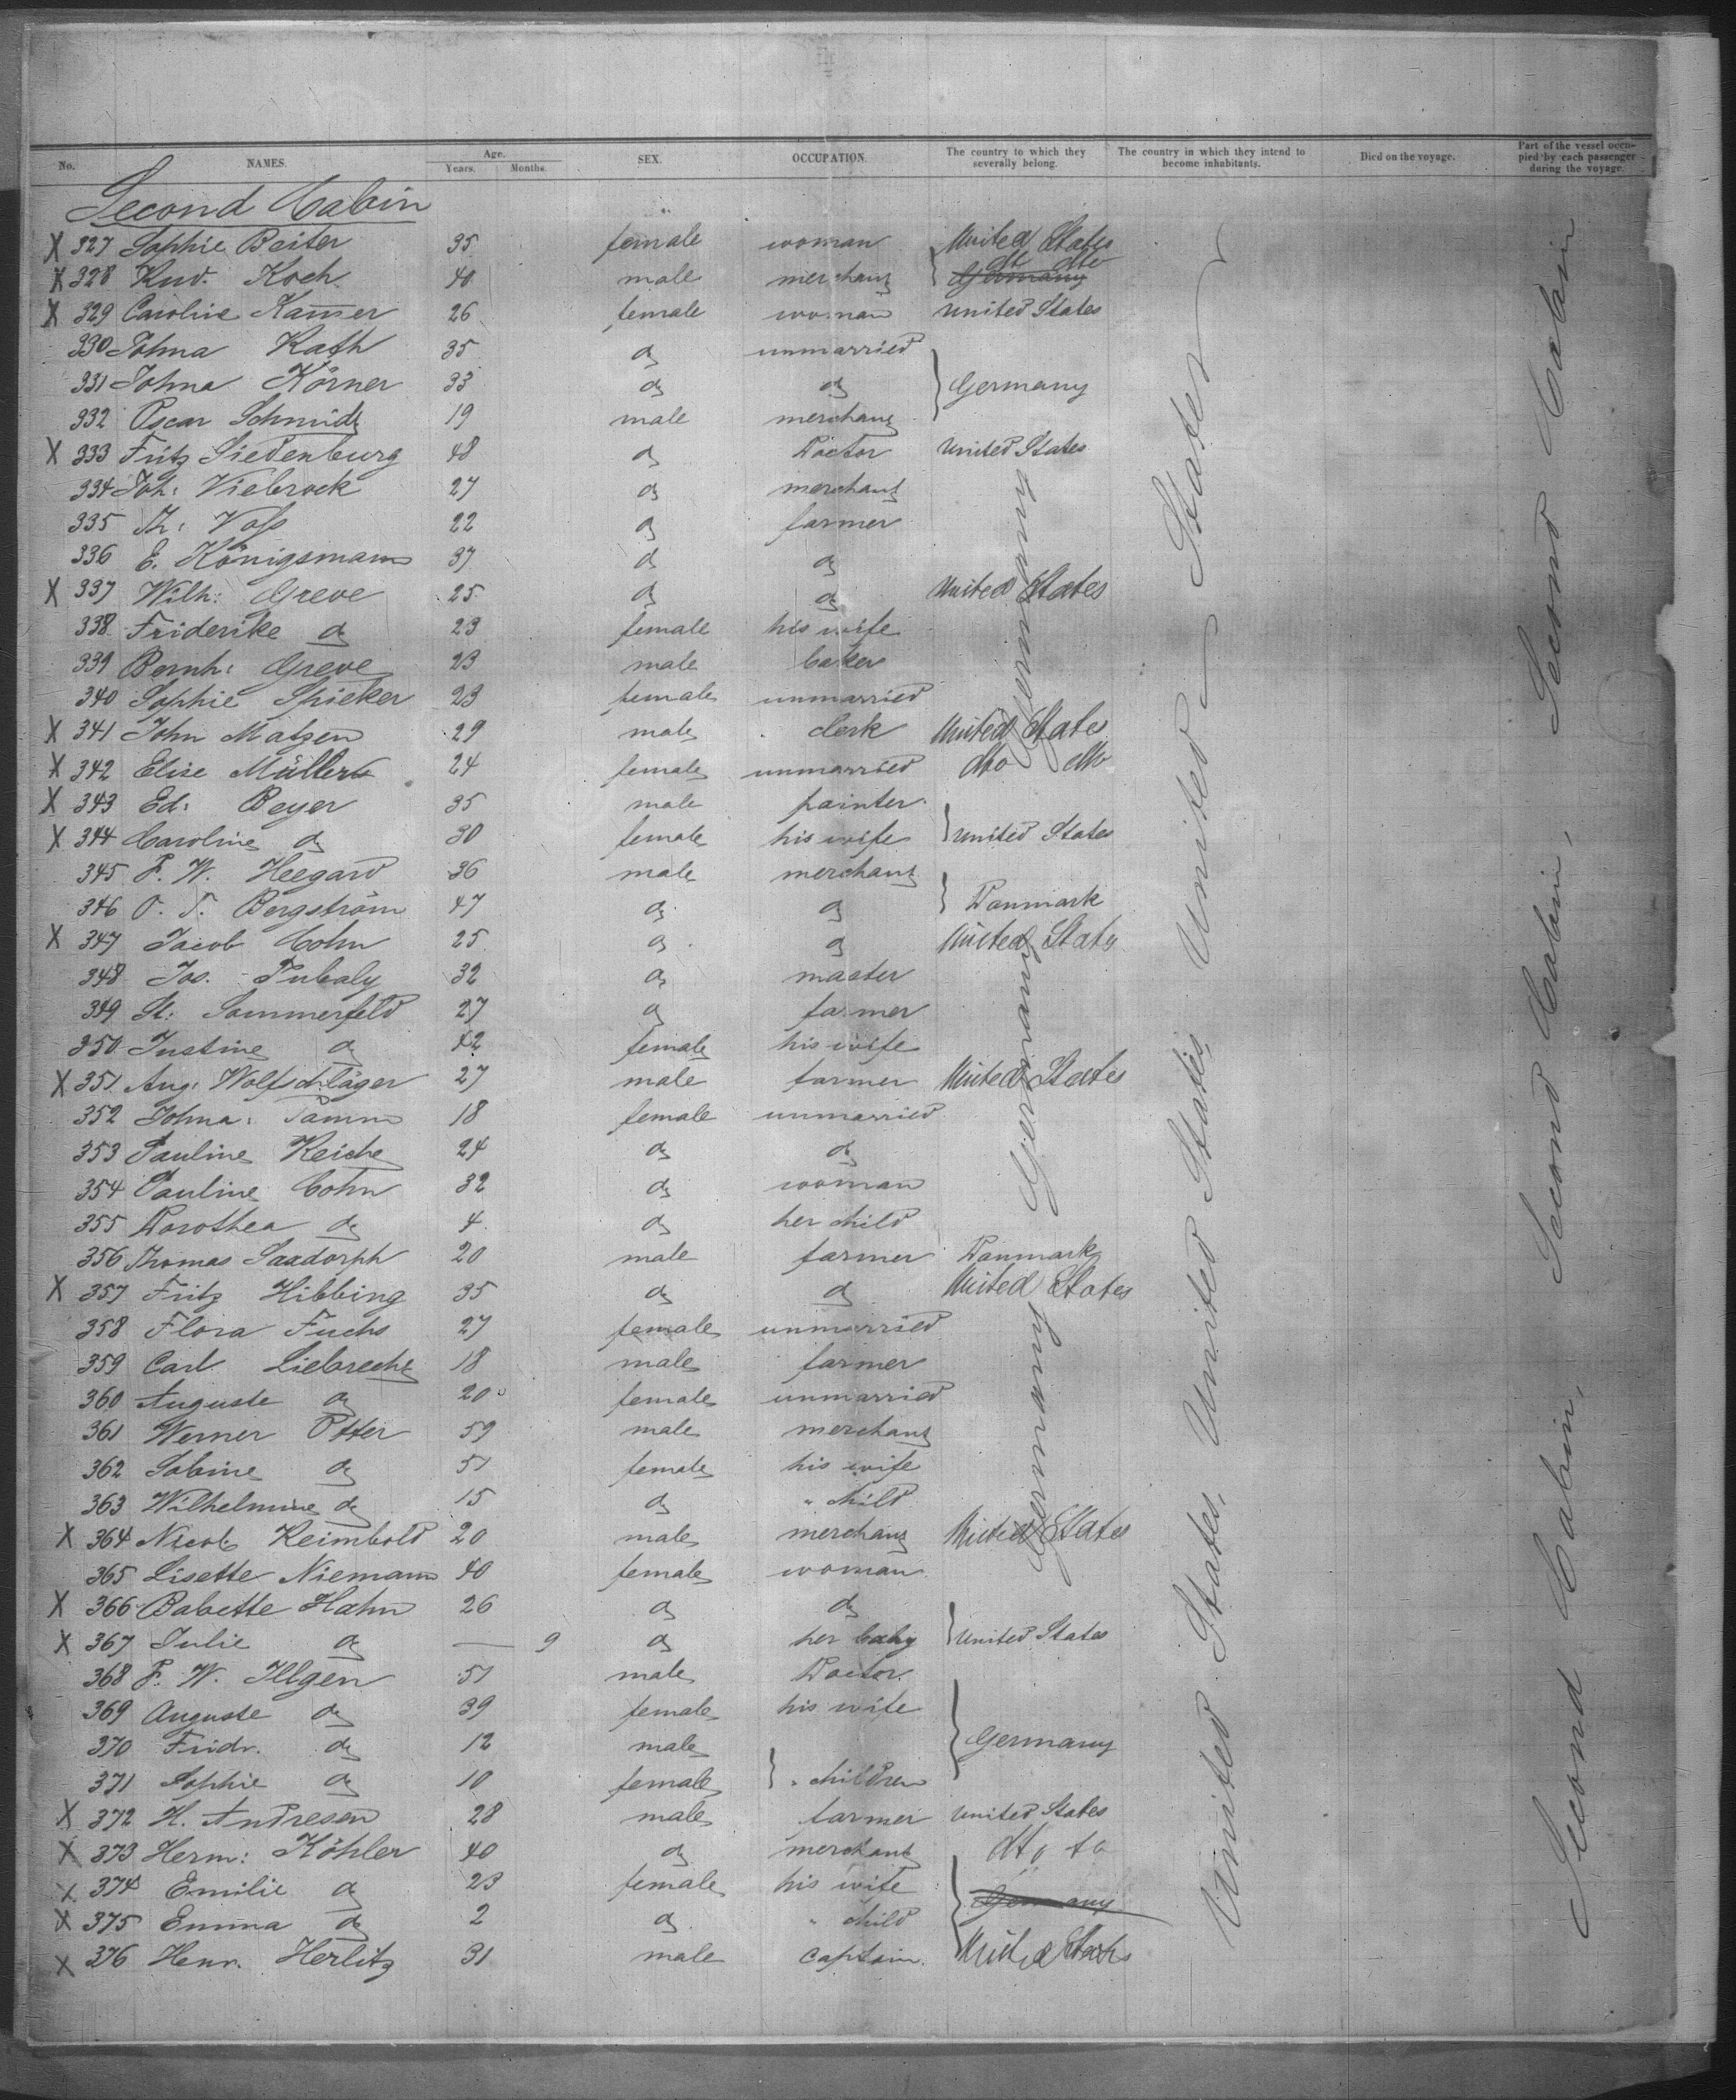 No. NAMES. Age. Years. Months. SEX. OCCUPATION. The country to which they severally belong. The country in which they intend to become inhabitants. Died on the voyage. Part of the vessel occupied by each passenger during the voyage.
Second Cabin
X 327 Sophie Beiter 35 female woman United States
X 328 Rud. Koch 40 male merchant Germany dto dto
X 329 Caroline Kam̅er 26 female woman United States
330 Johna Kath 35 do unmarried
331 Johna Körner 33 do do Germany
332 Oscar Schmidt 19 male merchant
X 333 Fritz Siedenburg 48 do Doctor United States
334 Joh: Viebrock 27 do merchant
335 Th: Voss 22 do farmer
336 E. Königsmann 37 do do
X 337 Wilh: Greve 25 do do United States
338 Friderike do 23 female his wife
339 Bernh: Greve 23 male baker
340 Sophie Spieker 23 female unmarried
X 341 John Matzen 29 male clerk United States
X 342 Elise Müller 24 female unmarried dto dto
X 343 Ed: Beyer 35 male painter
X 344 Caroline do 30 female his wife United States
345 F. W. Heegard 36 male merchant
346 O. T. Bergström 47 do do Danmark
X 347 Jacob Cohn 25 do do United States
348 Jos. Pubaly 32 do master
349 St: Sommerfeld 27 do farmer
350 Justine do 42 female his wife
X 351 Aug: Wolfschläger 27 male farmer United States
352 Johna: Tamm 18 female unmarried
353 Pauline Reiche 24 do do
354 Pauline Cohn 32 do woman
355 Dorothea do 4 do her child
356 Thomas Saadorph 20 male farmer Danmark
X 357 Fritz Hibbing 35 do do United States
358 Flora Fuchs 27 female unmarried
359 Carl Liebrecht 18 male farmer
360 Auguste do 20 female unmarried
361 Werner Otter 59 male merchant
362 Sabine do 51 female his wife
363 Wilhelmine do 15 do " child
X 364 Nicol: Reimbold 20 male merchant United States
365 Lisette Niemann 40 female woman
X 366 Babette Hahn 26 do do
X 367 Julie do — 9 do her baby United States
368 F. W. Illgen 51 male Doctor
369 Auguste do 39 female his wife
370 Fridr. do 12 male Germany
371 Sophie do 10 female " children
X 372 H. Andresen 28 male farmer United States
X 373 Herm: Köhler 40 do merchant dto to
X 374 Emilie do 23 female his wife
X 375 Emma do 2 do " child Germany
X 376 Henr. Herlitz 31 male captain United States
Germany Germany Germany
United States, United States, United States
Second Cabin, Second Cabin, Second Cabin